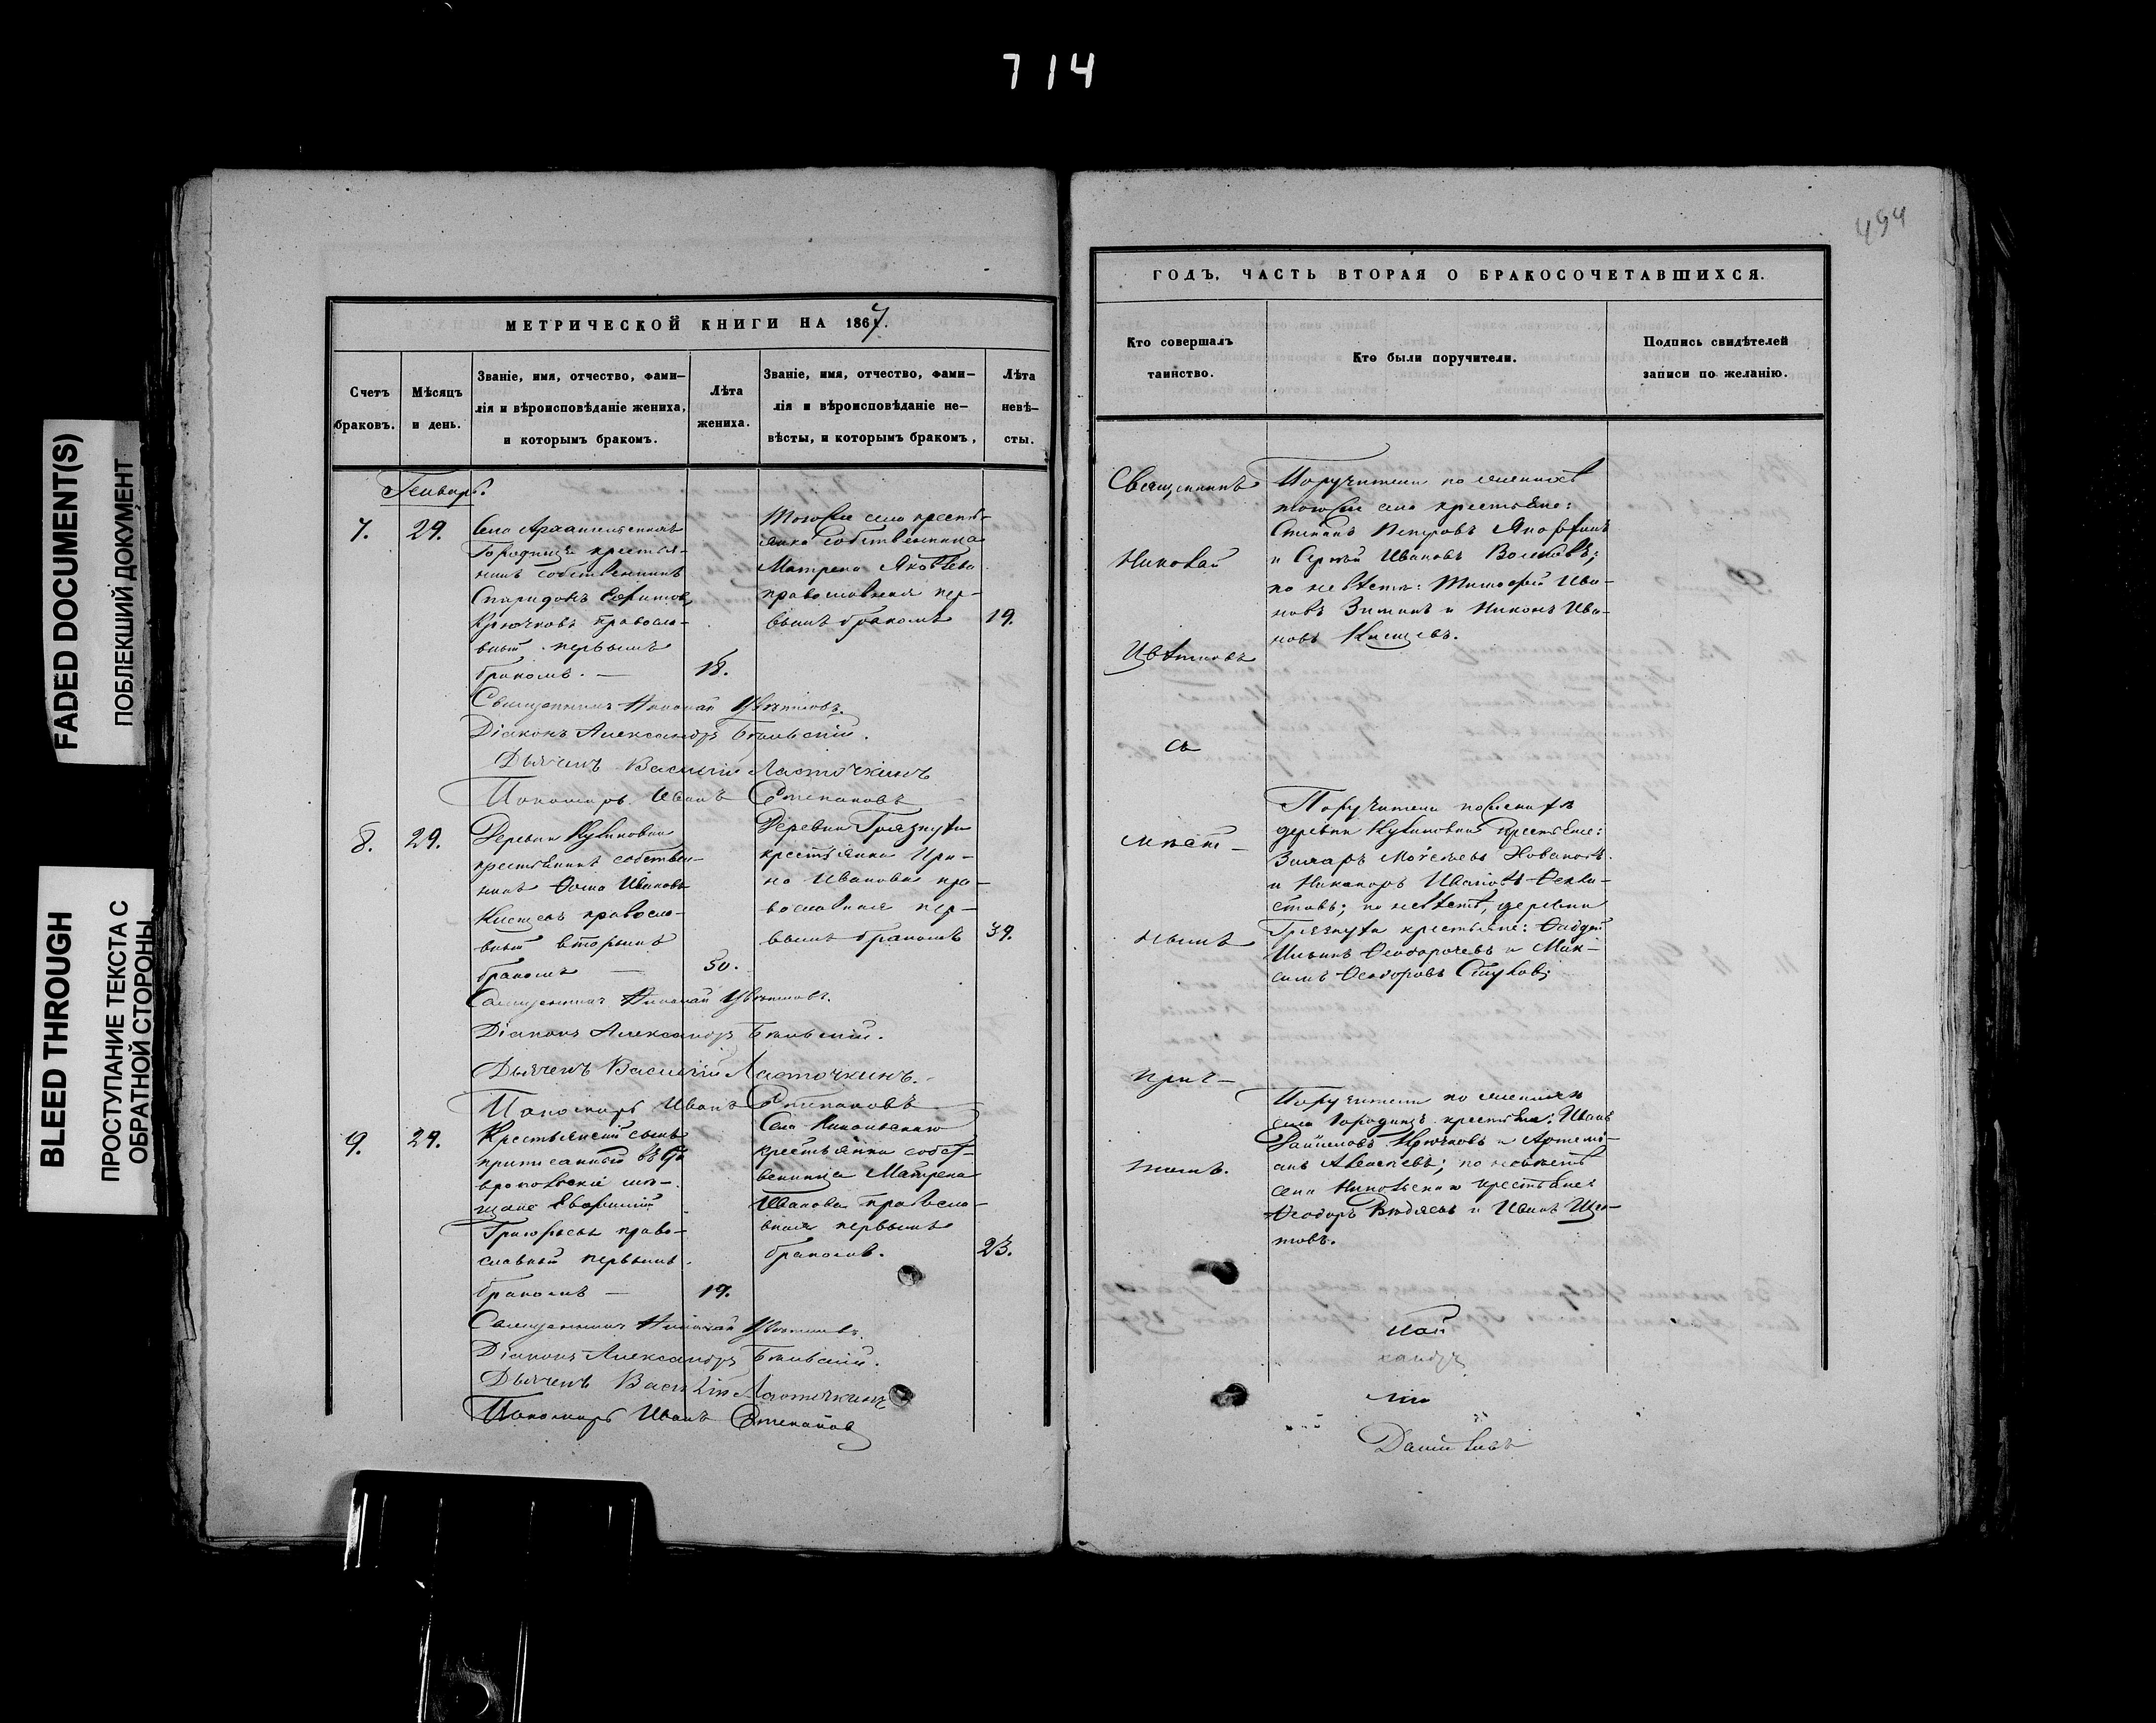 714
494
FADED DOCUMENT(S)
ПОБЛЕКШИЙ ДОКУМЕНТ
BLEED THROUGH
ПРОСТУПАНИЕ ТЕКСТА С
ОБРАТНОЙ СТОРОНЫ
МЕТРИЧЕСКОЙ КНИГИ НА 1867.
Счетъ
браковъ.
Мѣсяцъ
и день.
Званіе, имя, отчество, фами-
лія и вѣроисповѣданіе жениха,
и которымъ бракомъ.
Лѣта
жениха.
Званіе, имя, отчество, фами-
лія и вѣроисповѣданіе не-
вѣсты, и которымъ бракомъ,
Лѣта
невѣ-
сты.
Генварь.
7.
29.
Села Архангельскаго
Городищъ крестья-
нинъ собственникъ
Спиридонъ
Крючковъ правосла-
вный первымъ
бракомъ. —
18.
Тогоже села кресть-
янка собственница
Матрена Яковлева
православная пер-
вымъ бракомъ
19.
Священникъ Николай Цвѣтковъ.
Діаконъ Александръ Бѣльскій.
Дьячекъ Василій Ласточкинъ
Пономарь Иванъ Степановъ
8.
29.
Деревни
крестьянинъ собствен-
никъ Ѳома Ивановъ
Кистеръ правосла-
вный вторымъ
бракомъ —
50.
Деревни Грязнухи
крестьянка Ири-
на Иванова пра-
вославная пер-
вымъ бракомъ
39.
Священникъ Николай Цвѣтковъ.
Діаконъ Александръ Бѣльскій.
Дьячекъ Василій Ласточкинъ.
Пономарь Иванъ Степановъ
9.
29.
Крестьянскій сынъ
приписанный въ
мѣ-
щане
Григорьевъ право-
славный первымъ
бракомъ —
19.
Села Никольскаго
крестьянка собст-
венница Матрена
Иванова правосла-
вная первымъ
бракомъ.
23.
Священникъ Николай Цвѣтковъ.
Діаконъ Александръ Бѣльскій.
Дьячекъ Василій Ласточкинъ
Пономарь Иванъ Степановъ
ГОДЪ, ЧАСТЬ ВТОРАЯ О БРАКОСОЧЕТАВШИХСЯ.
Кто совершалъ
таинство.
Кто были поручители.
Подпись свидѣтелей
записи по желанію.
Священникъ
Николай
Цвѣтковъ
съ
мѣст-
нымъ
прич-
томъ.
Поручители по женихѣ
тогоже села крестьяне:
Степанъ Петровъ
и Сергѣй Ивановъ Волковъ;
по невѣстѣ: Тимофей Ива-
новъ Зиминъ и Никонъ Ива-
новъ
Поручители по женихѣ
деревни крестьяне:
и Никаноръ Ивановъ Ѳекли-
стовъ; по невѣстѣ, деревни
Грязнухи крестьяне: Ѳаддей
Ильинъ и Мак-
симъ Ѳеодоровъ
Поручители по женихѣ
села Городищъ крестьяне: Иванъ
Крючковъ и Артемъ-
по невѣстѣ
села Никольскаго крестьяне
Ѳеодоръ и Иванъ
товъ.